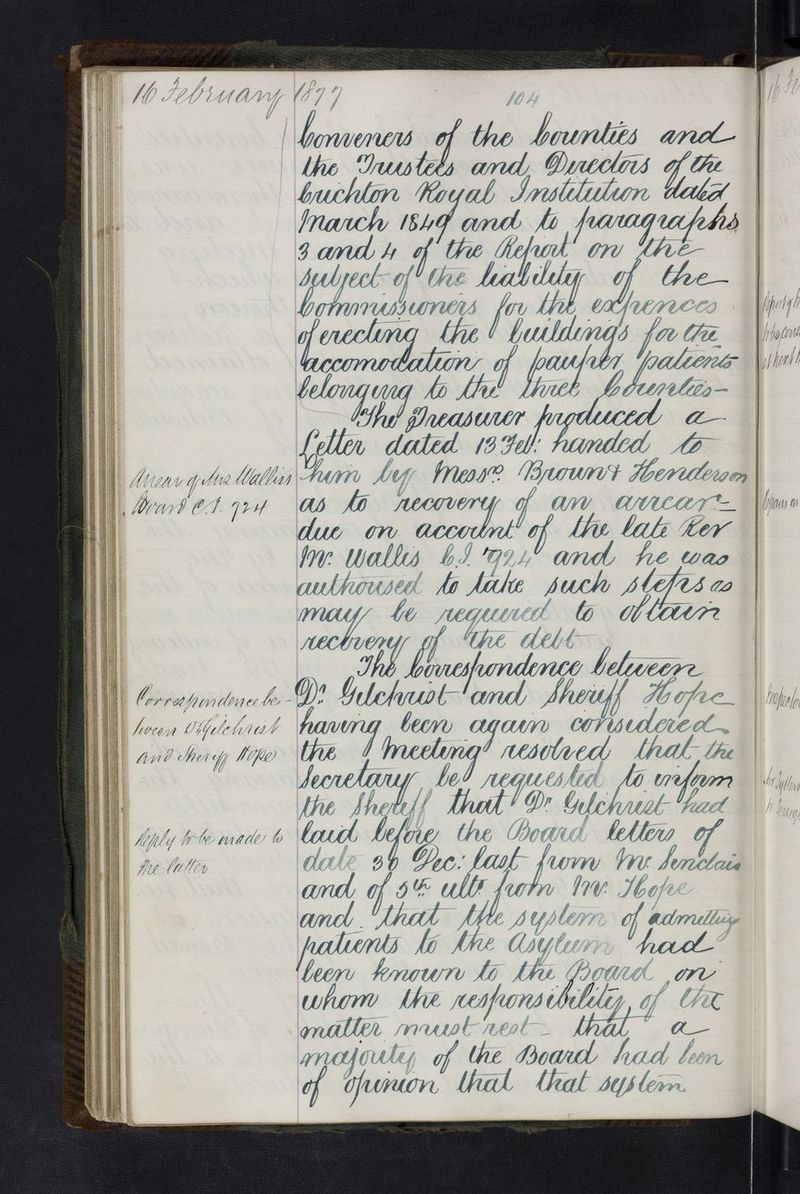 16 February 1877
104
Conveners of the Counties and
the Trustees and Directors of the
Crichton Royal Institution dated
March 1849 and to paragraphs
3 and 4 of the Report on the
subject of the liability of the
Commissioners for the expences
of erecting the buildings for the
accomodation of pauper patients
belonging to the three Counties—
The Treasurer produced a
Letter dated 13 Feb: handed to
Arrear of Wallis's
Board C.I. 724
him by Messrs. Brown & Henderson
as to recovery of an arrear
due on account of the late Rev
Mr. Wallis C.I. 724 and he was
authorised to take such steps as
may be required to obtain
recovery of the debt
The Correspondence between
Correspondence be-
tween Dr Gilchrist
and Sheriff Hope
Dr. Gilchrist and Sheriff Hope
having been again considered
the Meeting resolved that the
Secretary be requested to inform
the Sheriff that Dr. Gilchrist had
Reply to be made to
the latter
laid before the Board letters of
date 30 Dec: last from Mr. Sinclair
and of 5th ulto from Mr. Hope
and that the system of admitting
patients to the Asylum had
been known to the Board on
whom the responsibility of the
matter must rest – that a
majority of the Board had been
of opinion that that system
16 Fe